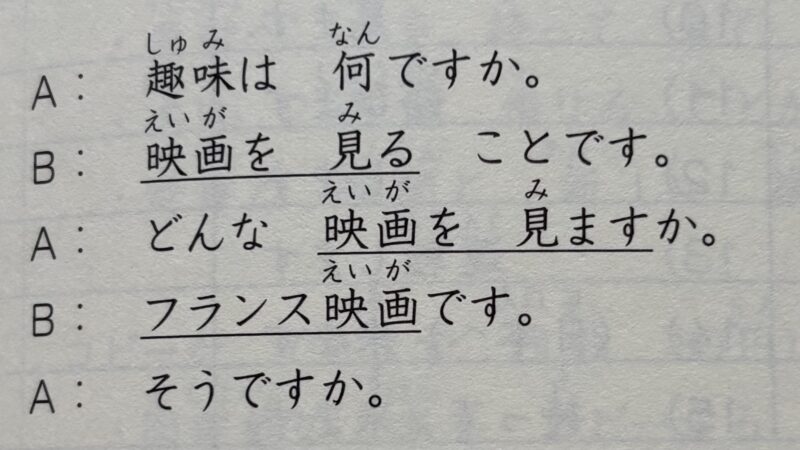 しゅみ なん
A： 趣味は 何ですか。
えいが み
B： 映画を 見る ことです。
えいが み
A： どんな 映画を 見ますか。
えいが
B： フランス映画です。
A： そうですか。